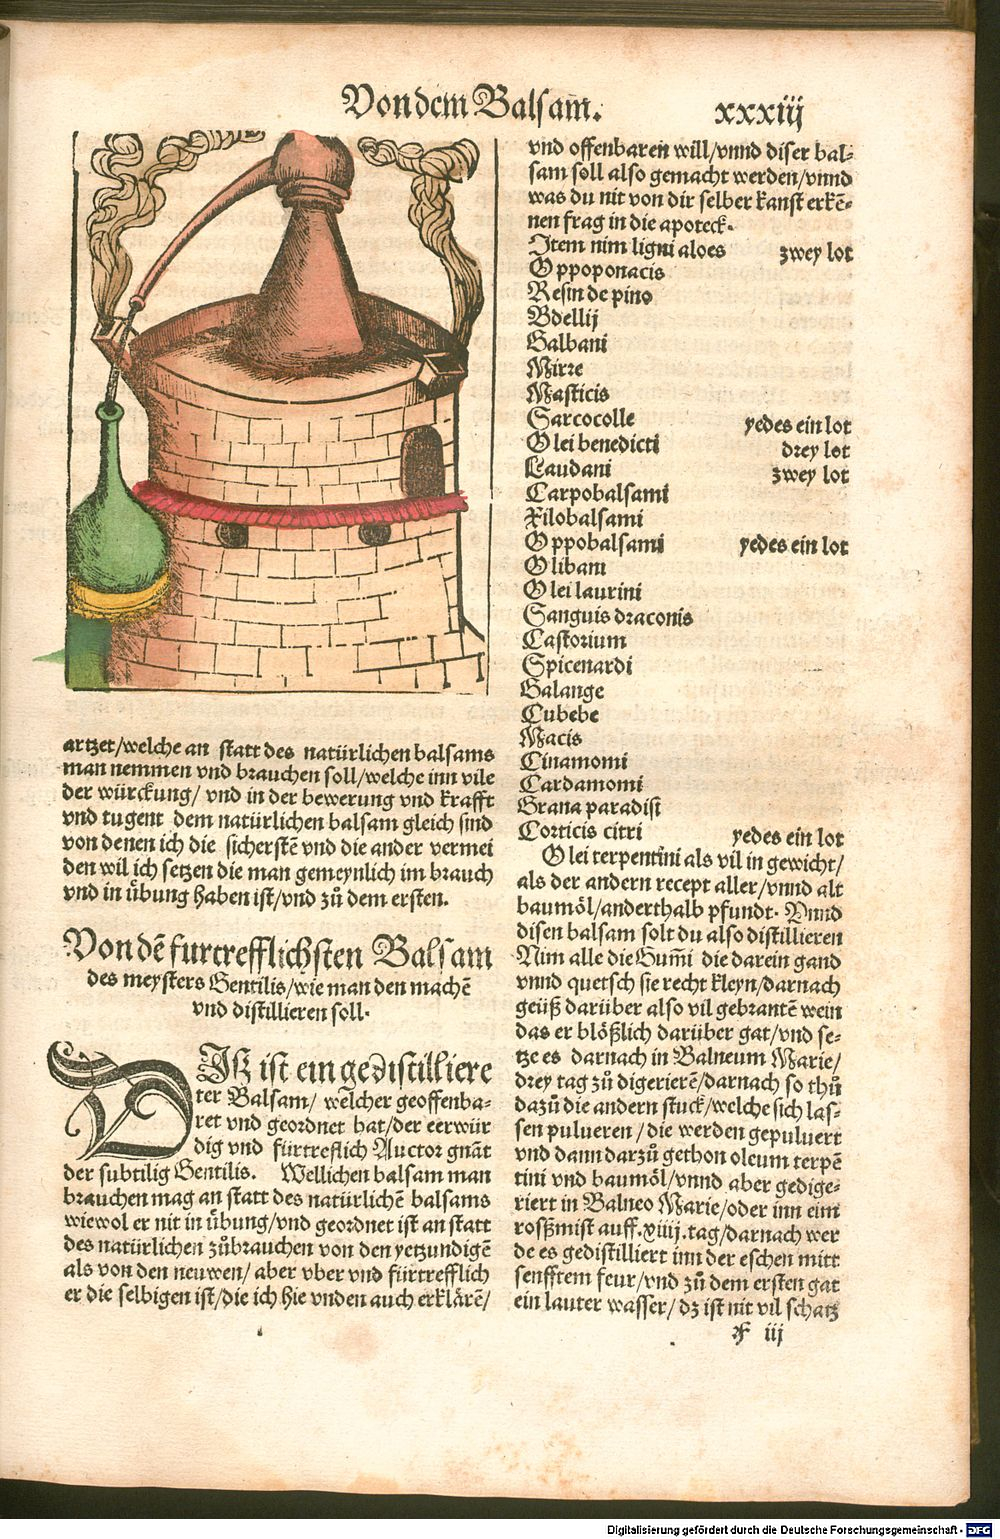 Von dem Balsam̄. xxxiij
artzet/welche an statt des natürlichen balsams
man nemmen vnd brauchen soll/welche inn vile
der würckung/ vnd in der bewerung vnd krafft
vnd tugent dem natürlichen balsam gleich sind
von denen ich die sicherstē vnd die ander vermei
den wil ich setzen die man gemeynlich im brauch
vnd in übung haben ist/vnd zů dem ersten.
Von dē furtrefflichsten Balsam
des meysters Gentilis/wie man den machē
vnd distillieren soll.
DIß ist ein gedistilliere
ter Balsam/ welcher geoffenba-
ret vnd geordnet hat/der eerwür
dig vnd fürtreflich Auctor gnāt
der subtilig Gentilis. Wellichen balsam man
brauchen mag an statt des natürlichē balsams
wiewol er nit in übung/vnd geordnet ist an statt
des natürlichen zůbrauchen von den yetzundigē
als von den neuwen/ aber vber vnd fürtrefflich
er die selbigen ist/die ich hie vnden auch erklärē/
vnd offenbaren will/vnnd diser bal-
sam soll also gemacht werden/vnnd
was du nit von dir selber kanst erkē-
nen frag in die apoteck.
Item nim ligni aloes zwey lot
Oppoponacis
Resin de pino
Bdellij
Galbani
Mirre
Masticis
Sarcocolle yedes ein lot
Olei benedicti drey lot
Laudani zwey lot
Carpobalsami
Xilobalsami
Oppobalsami yedes ein lot
Olibani
Olei laurini
Sanguis draconis
Castorium
Spicenardi
Galange
Cubebe
Macis
Cinamomi
Cardamomi
Grana paradisi
Corticis citri yedes ein lot
Olei terpentini als vil in gewicht/
als der andern recept aller/vnnd alt
baumöl/anderthalb pfundt. Vnnd
disen balsam solt du also distillieren
Nim alle die Gum̄i die darein gand
vnnd quetsch sie recht kleyn/darnach
geüß darüber also vil gebrantē wein
das er blößlich darüber gat/vnd se-
tze es darnach in Balneum Marie/
drey tag zů digerierē/darnach so thů
dazů die andern stuck/welche sich las-
sen pulueren/die werden gepuluert
vnd dann darzů gethon oleum terpē
tini vnd baumöl/vnnd aber gedige-
riert in Balneo Marie/oder inn eim
roßmist auff .xiiij. tag/darnach wer
de es gedistilliert inn der eschen mitt
senfftem feur/vnd zů dem ersten gat
ein lauter wasser/dz ist nit vil schatz
F iij
Digitalisierung gefördert durch die Deutsche Forschungsgemeinschaft - DFG